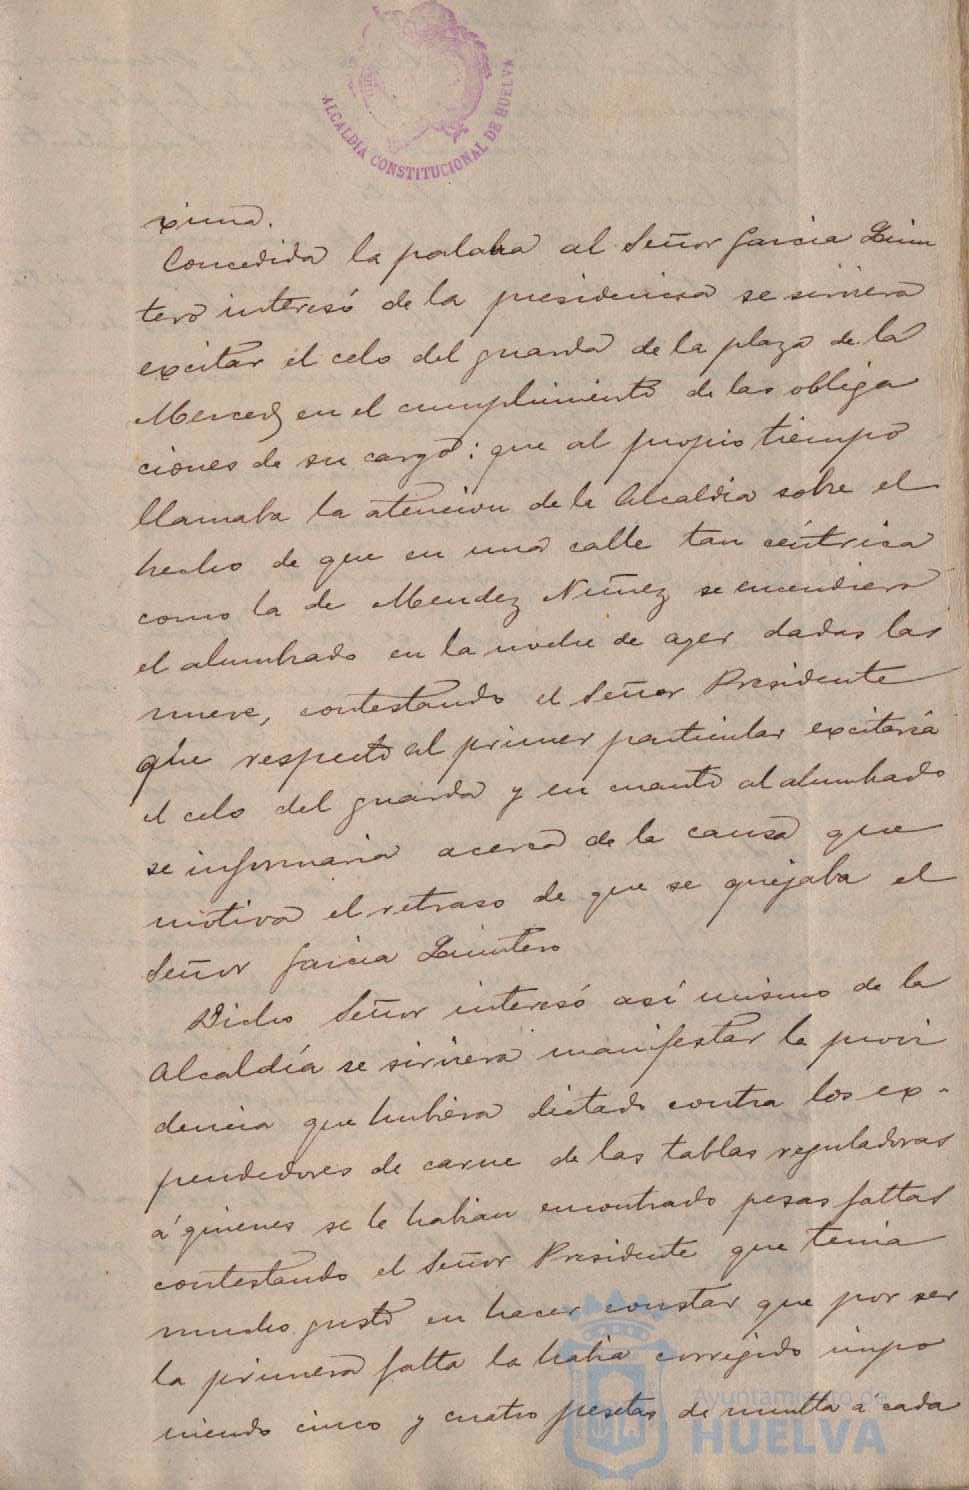 ALCALDÍA CONSTITUCIONAL DE HUELVA
xima.
Concedida la palabra al Señor Garcia Quin
tero interesó de la presidencia se sirviera
excitar el celo del guarda de la plaza de la
Merced en el cumplimiento de las obliga
ciones de su cargo: que al propio tiempo
llamaba la atencion de la Alcaldia sobre el
hecho de que en una calle tan céntrica
como la de Mendez Nuñez se encendiera
el alumbrado en la noche de ayer dadas las
nueve, contestando el Señor Presidente
que respecto al primer particular excitaria
el celo del guarda y en cuanto al alumbrado
se informaria acerca de la causa que
motiva el retraso de que se quejaba el
Señor Garcia Quintero
Dicho Señor interesó así mismo de la
Alcaldía se sirviera manifestar la provi
dencia que hubiera dictado contra los ex-
pendedores de carne de las tablas reguladoras
á quienes se le habian encontrado pesas faltas
contestando el Señor Presidente que tenia
mucho gusto en hacer constar que por ser
la primera falta la habia corregido impo
niendo cinco y cuatro pesetas de multa a cada
Ayuntamiento de
HUELVA